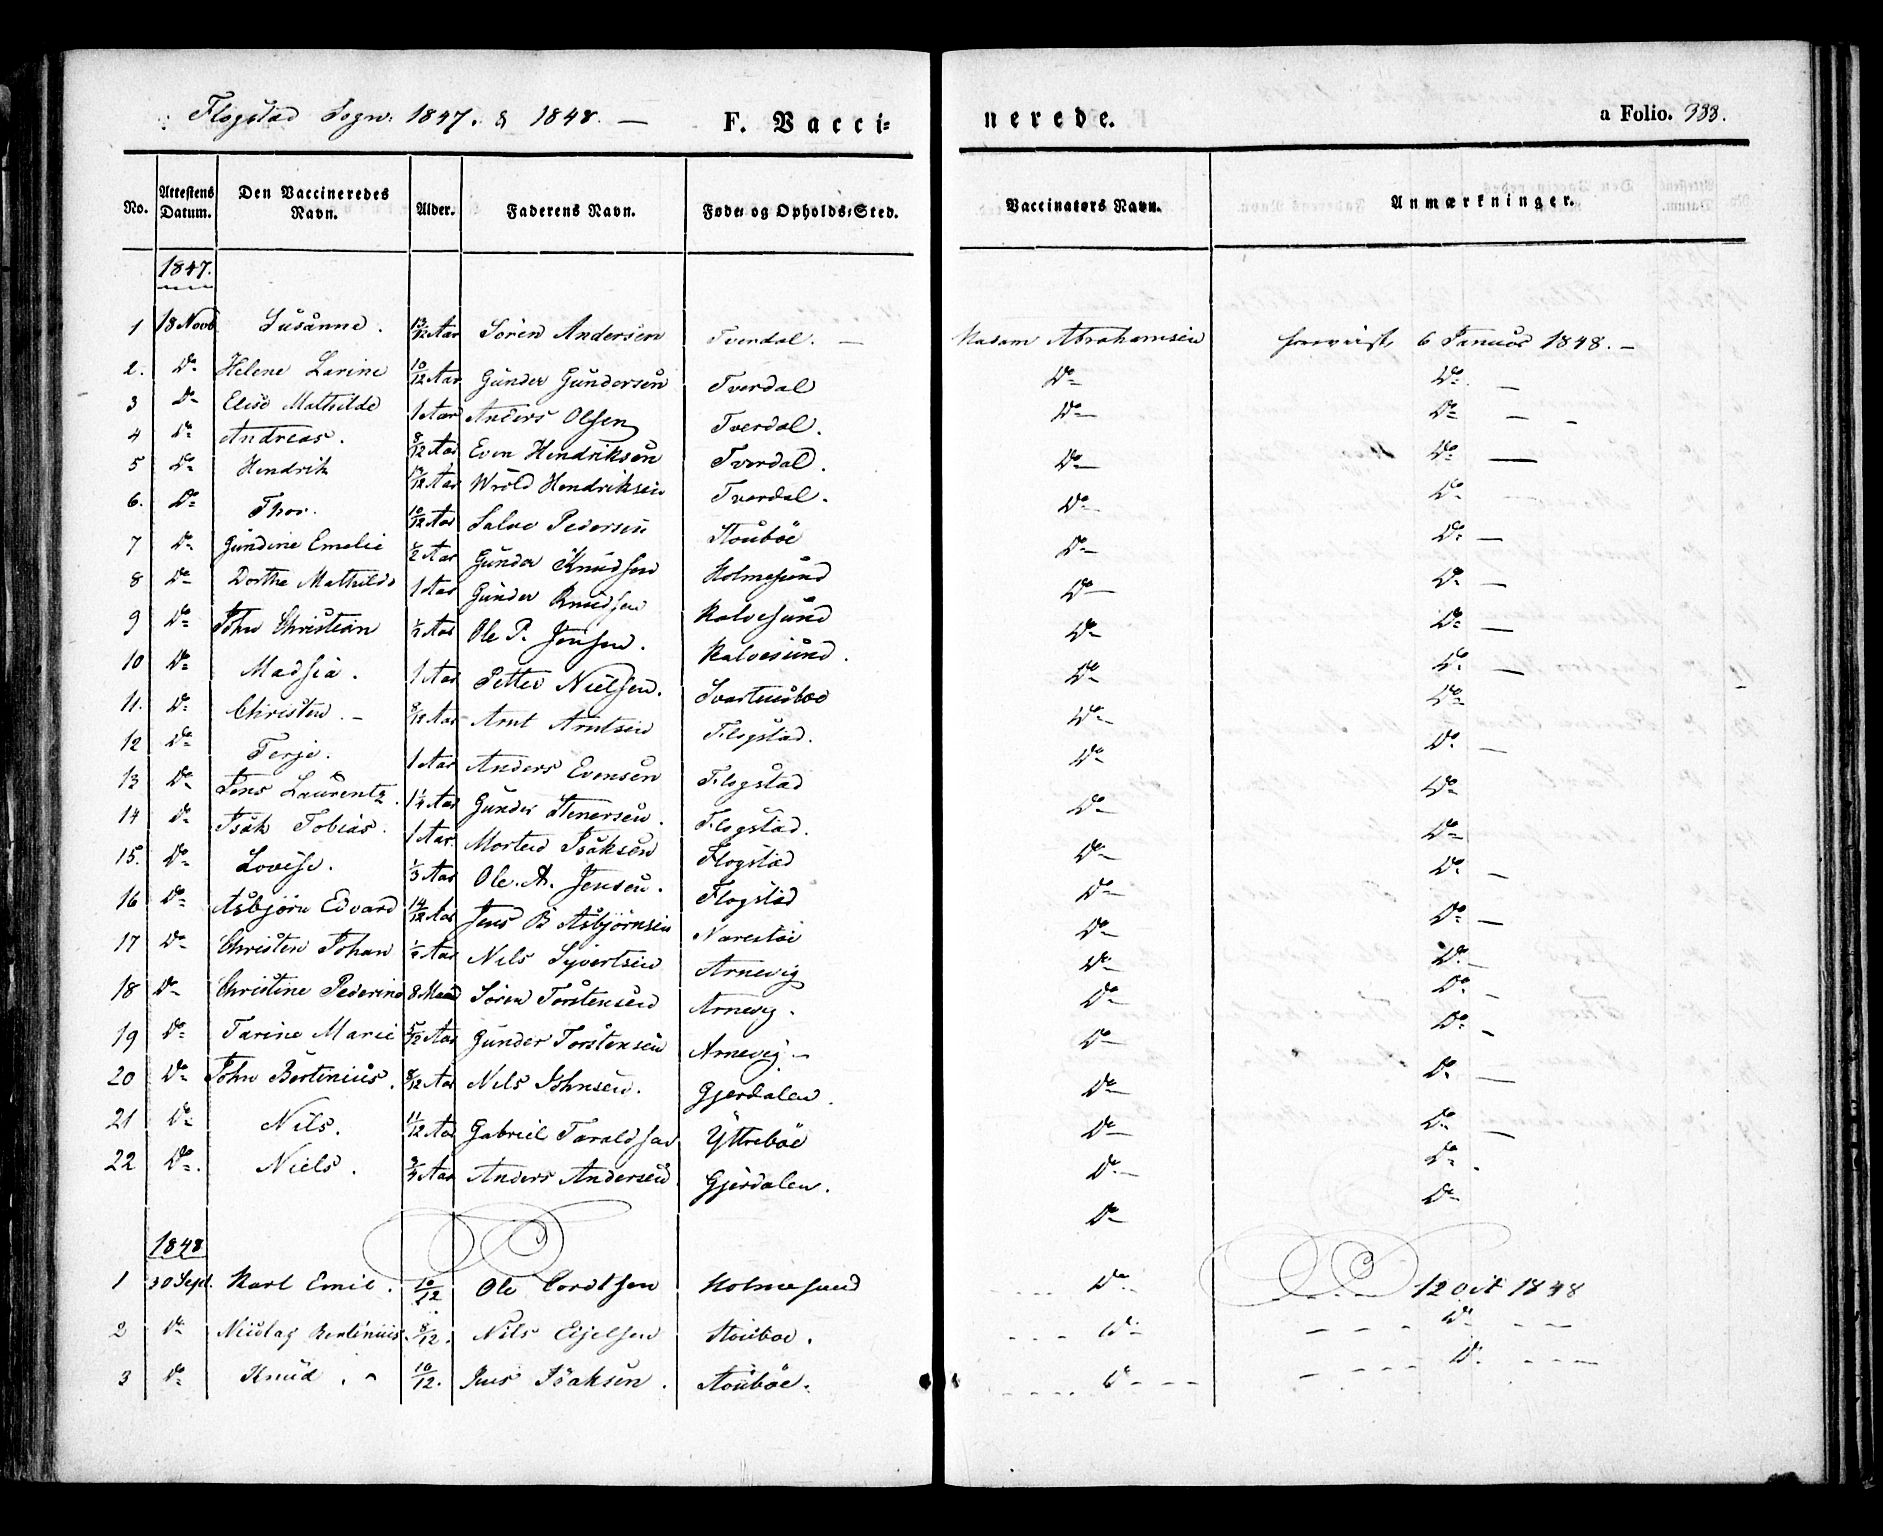 Flogstad Sogn. 1847. & 1848. — F. Vacci- nerede. a Folio. 333.
No. Attestens Datum. Den Vaccineredes Navn. Alder. Faderens Navn. Føde- og Opholds-Sted. Vaccinators Navn. Anmærkninger.
1847.
1 18 Novb Susanne. 13/12 Aar Sören Andersen Tverdal. — Madam Abrahamsen foreviist 6 Januar 1848. —
2. Do Helene Larine 10/12 Aar Gunder Gundersen Tverdal Do Do —
3 Do Elise Mathilde 1 Aar Anders Olsen Tverdal. Do Do — -
4 Do Andreas. 8/12 Aar Even Hendriksen Tverdal. Do Do —
5 Do Hendrik /12 Aar Wrold Hendriksen Tverdal. Do Do
6. Do Thor. 10/12 Aar Salve Pedersen Stouböe Do Do —
7 Do Gundine Emelie 1/2 Aar Gunder Knudsen Holmesund Do Do —
8 Do Dorthe Mathilde 1 Aar Gunder Knudsen Kalvesund Do Do —
9 Do John Christian 1/2 Aar Ole P. Jensen. Kalvesund. Do Do —
10 Do Madsia. 1 Aar Petter Nielsen. Svartnesboe Do Do
11. Do Christen. — 8/12 Aar Arnt Arntsen Flogstad. Do Do —
12 Do Terje. 1 Aar Anders Evensen Flogstad Do Do
13 Do Jens Laurentz. 1 1/4 Aar Gunder Stenersen. Flogstad. Do Do
14 Do Isak Tobias. 1 Aar Morten Isaksen Flogstad Do Do —
15. Do Lovise. 1/3 Aar Ole. A. Jensen. Flogstad Do Do —
16 Do Asbjörn Edvard 14/12 Aar Jens B Asbjörnsen Narestöe Do Do —
17 Do Christen Johan 1/2 Aar Nils Syvertsen Arnevig Do Do —
18 Do Christine Pederine 8 Maan Sören Torstensen Arnevig. Do Do —
19 Do Tarine Marie 5/12 Aar Gunder Torstensen Arnevig — Do Do —
20 Do John Bertinius. 8/12 Aar Nils Johnsen. Gjerdalen. Do Do —
21 Do Nils. 11/12 Aar Gabriel Taraldsen Yttreböe Do Do .
22 Do. Niels. 3/4 Aar Anders Andersen Gjerdalen. Do Do
1848
1 30 Sept. Karl Emil. 10/12 Ole Cordtsen Holmesund Do 12 Oct 1848
2 Do Nicolay Bertinius. 8/12. Nils Eijelsen Stouboe. Do Do
3 Do Knud. 10/12. Jens Isaksen. Stouböe. Do Do